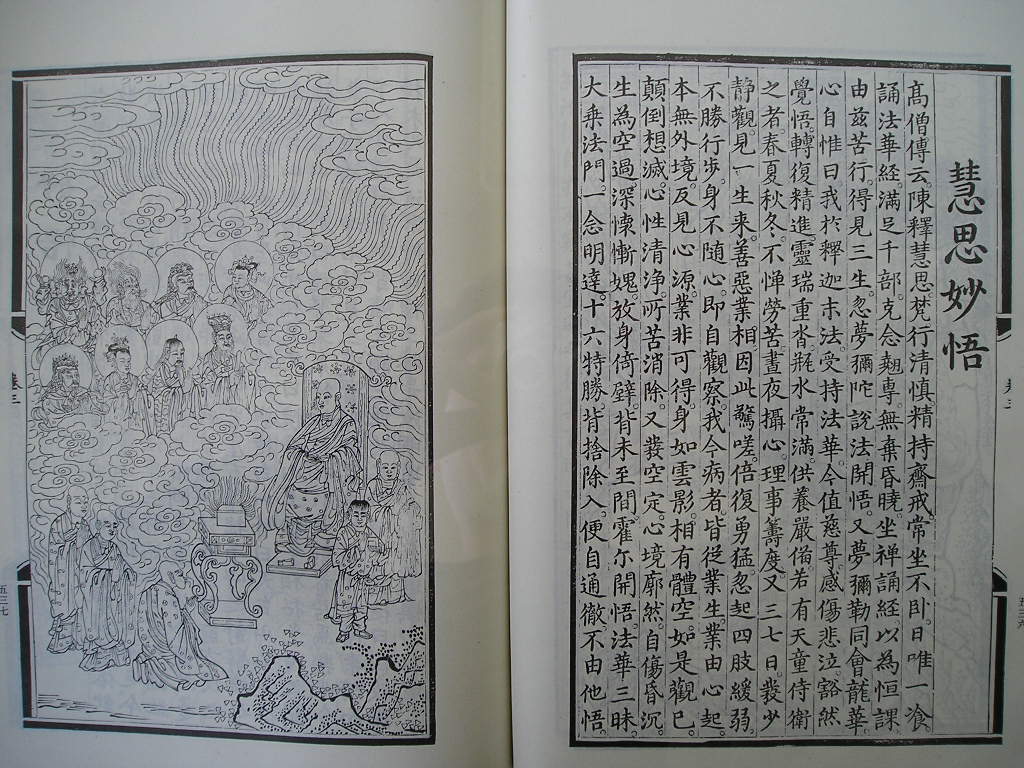 慧思妙悟
高僧傳云。陳釋慧思。梵行清慎。精持齋戒。常坐不卧。日唯一飡。
誦法華經。滿足千部。克念翹專。無棄昏曉。坐禪誦經。以為恒課。
由兹苦行。得見三生。忽夢彌陀。說法開悟。又夢彌勒。同會龍華。
心自惟曰。我於釋迦末法。受持法華。今值慈尊。感傷悲泣。豁然
覺悟。轉復精進。靈瑞重沓。瓶水常滿。供養嚴備。若有天童侍衛
之者。春夏秋冬。不憚勞苦。晝夜攝心。理事籌度。又三七日。發少
靜觀。見一生來。善惡業相。因此驚嗟。倍復勇猛。忽起四肢緩弱。
不勝行步。身不隨心。即自觀察。我今病者。皆從業生。業由心起。
本無外境。反見心源。業非可得。身如雲影。相有體空。如是觀已。
顛倒想滅。心性清淨。所苦消除。又發空定。心境廓然。自傷昏沉。
生為空過。深懷慚媿。放身倚壁。背未至間。霍尔開悟。法華三昧。
大乘法門。一念明達。十六特勝。背捨除入。便自通徹。不由他悟。
卷三
五三七